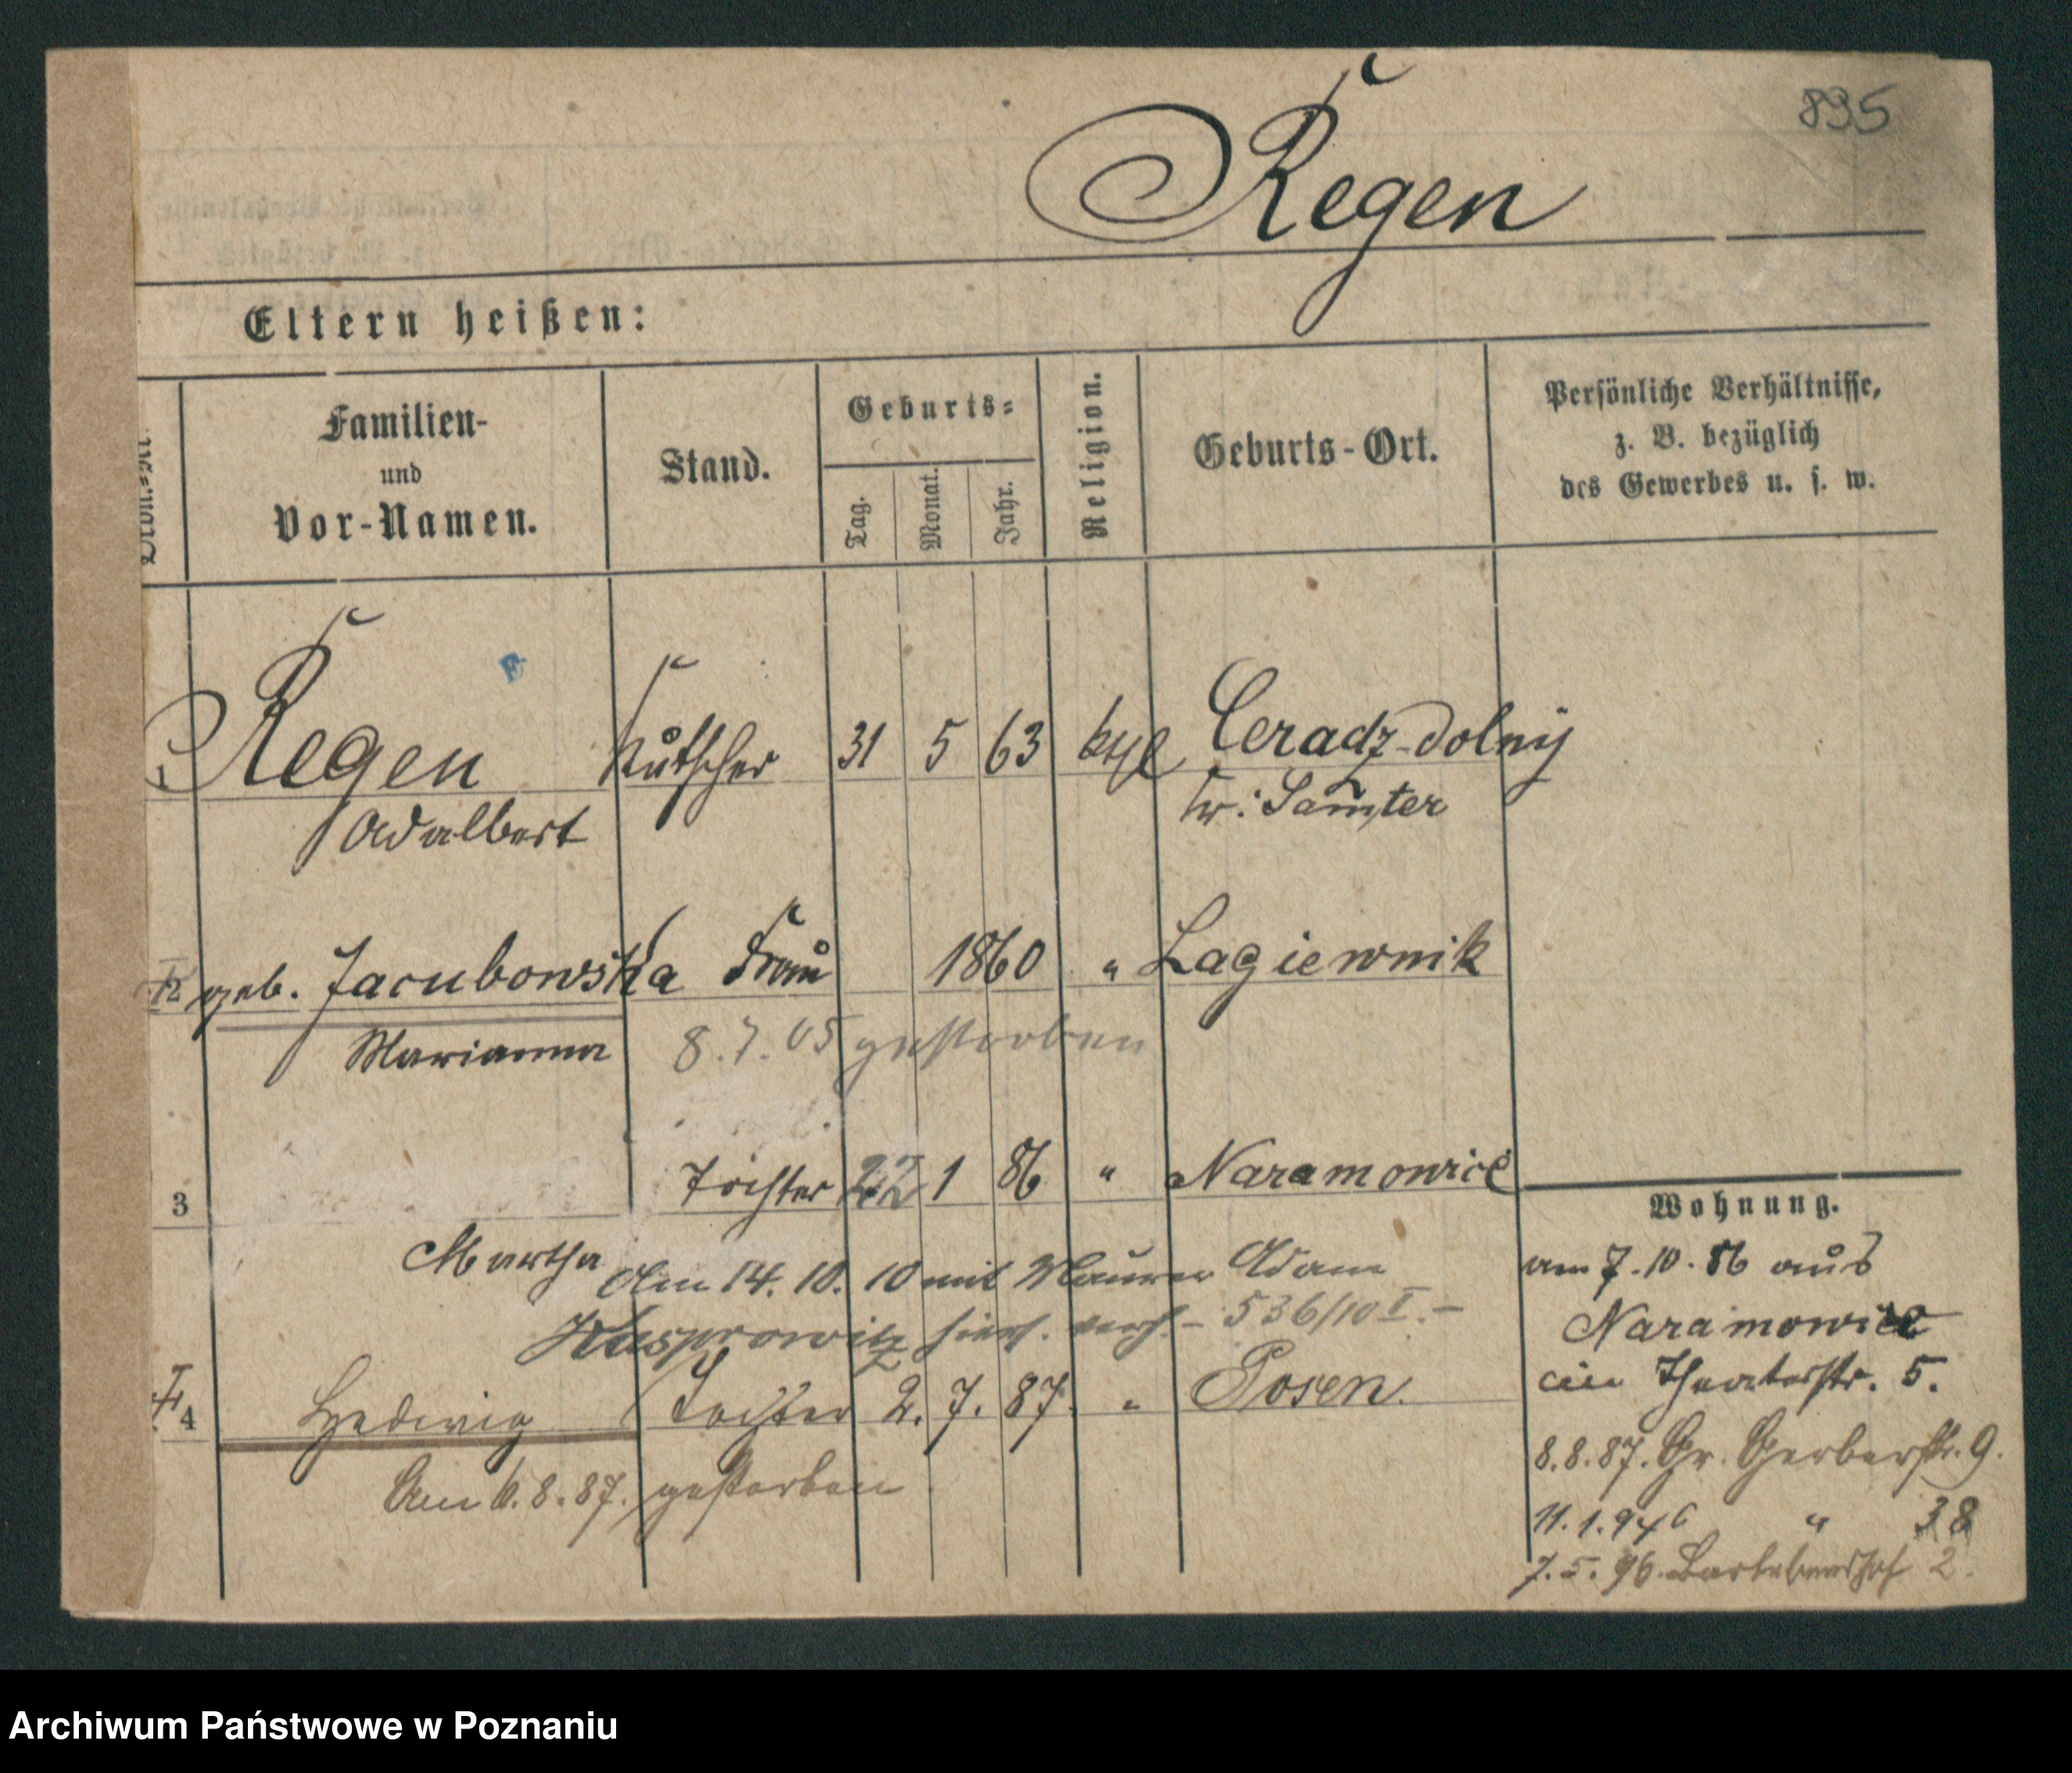 895
Regen
Eltern heißen:
Ordn.-Nr.
Familien-
und
Vor-Namen.
Stand.
Geburts-
Tag.
Monat.
Jahr.
Religion.
Geburts-Ort.
Persönliche Verhältnisse,
z. B. bezüglich
des Gewerbes u. s. w.
1 Regen Kutscher 31 5 63 ktl Ceradz-dolny
Adalbert Kr: Samter
2 geb. Jacubowska Frau 1860 " Lagiewnik
Marianna 8.7.05 gestorben
3 Tochter 22 1 86 " Naramowice
Martha Am 14.10.10 mit Maurer Adam
Kasprowitz hier verh. – 536/10 I. –
4 Hedwig Tochter 2. 7. 87. " Posen.
Am 6.8.87. gestorben
Wohnung.
am 7.10.86 aus
Naramowice
in Theaterstr. 5.
8.8.87. Gr. Gerberstr. 9.
11.1.94 " 38
7.5.96. 2.
Archiwum Państwowe w Poznaniu